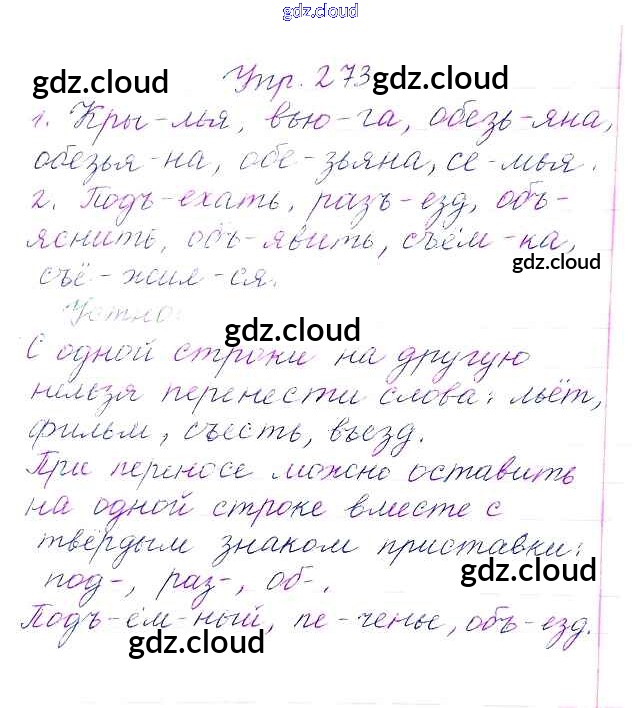 gdz.cloud
gdz.cloud Упр. 273 gdz.cloud
1. Кры-лья, вью-га, обезь-яна,
обезья-на, обе-зьяна, се-мья.
2. Подъ-ехать, разъ-езд, объ-
яснить, объ-явить, съём-ка,
gdz.cloud
съё-жил-ся.
Устно:
gdz.cloud
С одной строки на другую
нельзя перенести слова: льёт,
фильм, съесть, въезд.
При переносе можно оставить
на одной строке вместе с
твёрдым знаком приставки:
gdz.cloud
под-, раз-, об-.
Подъ-ём-ный, пе-ченье, объ-езд.
gdz.cloud